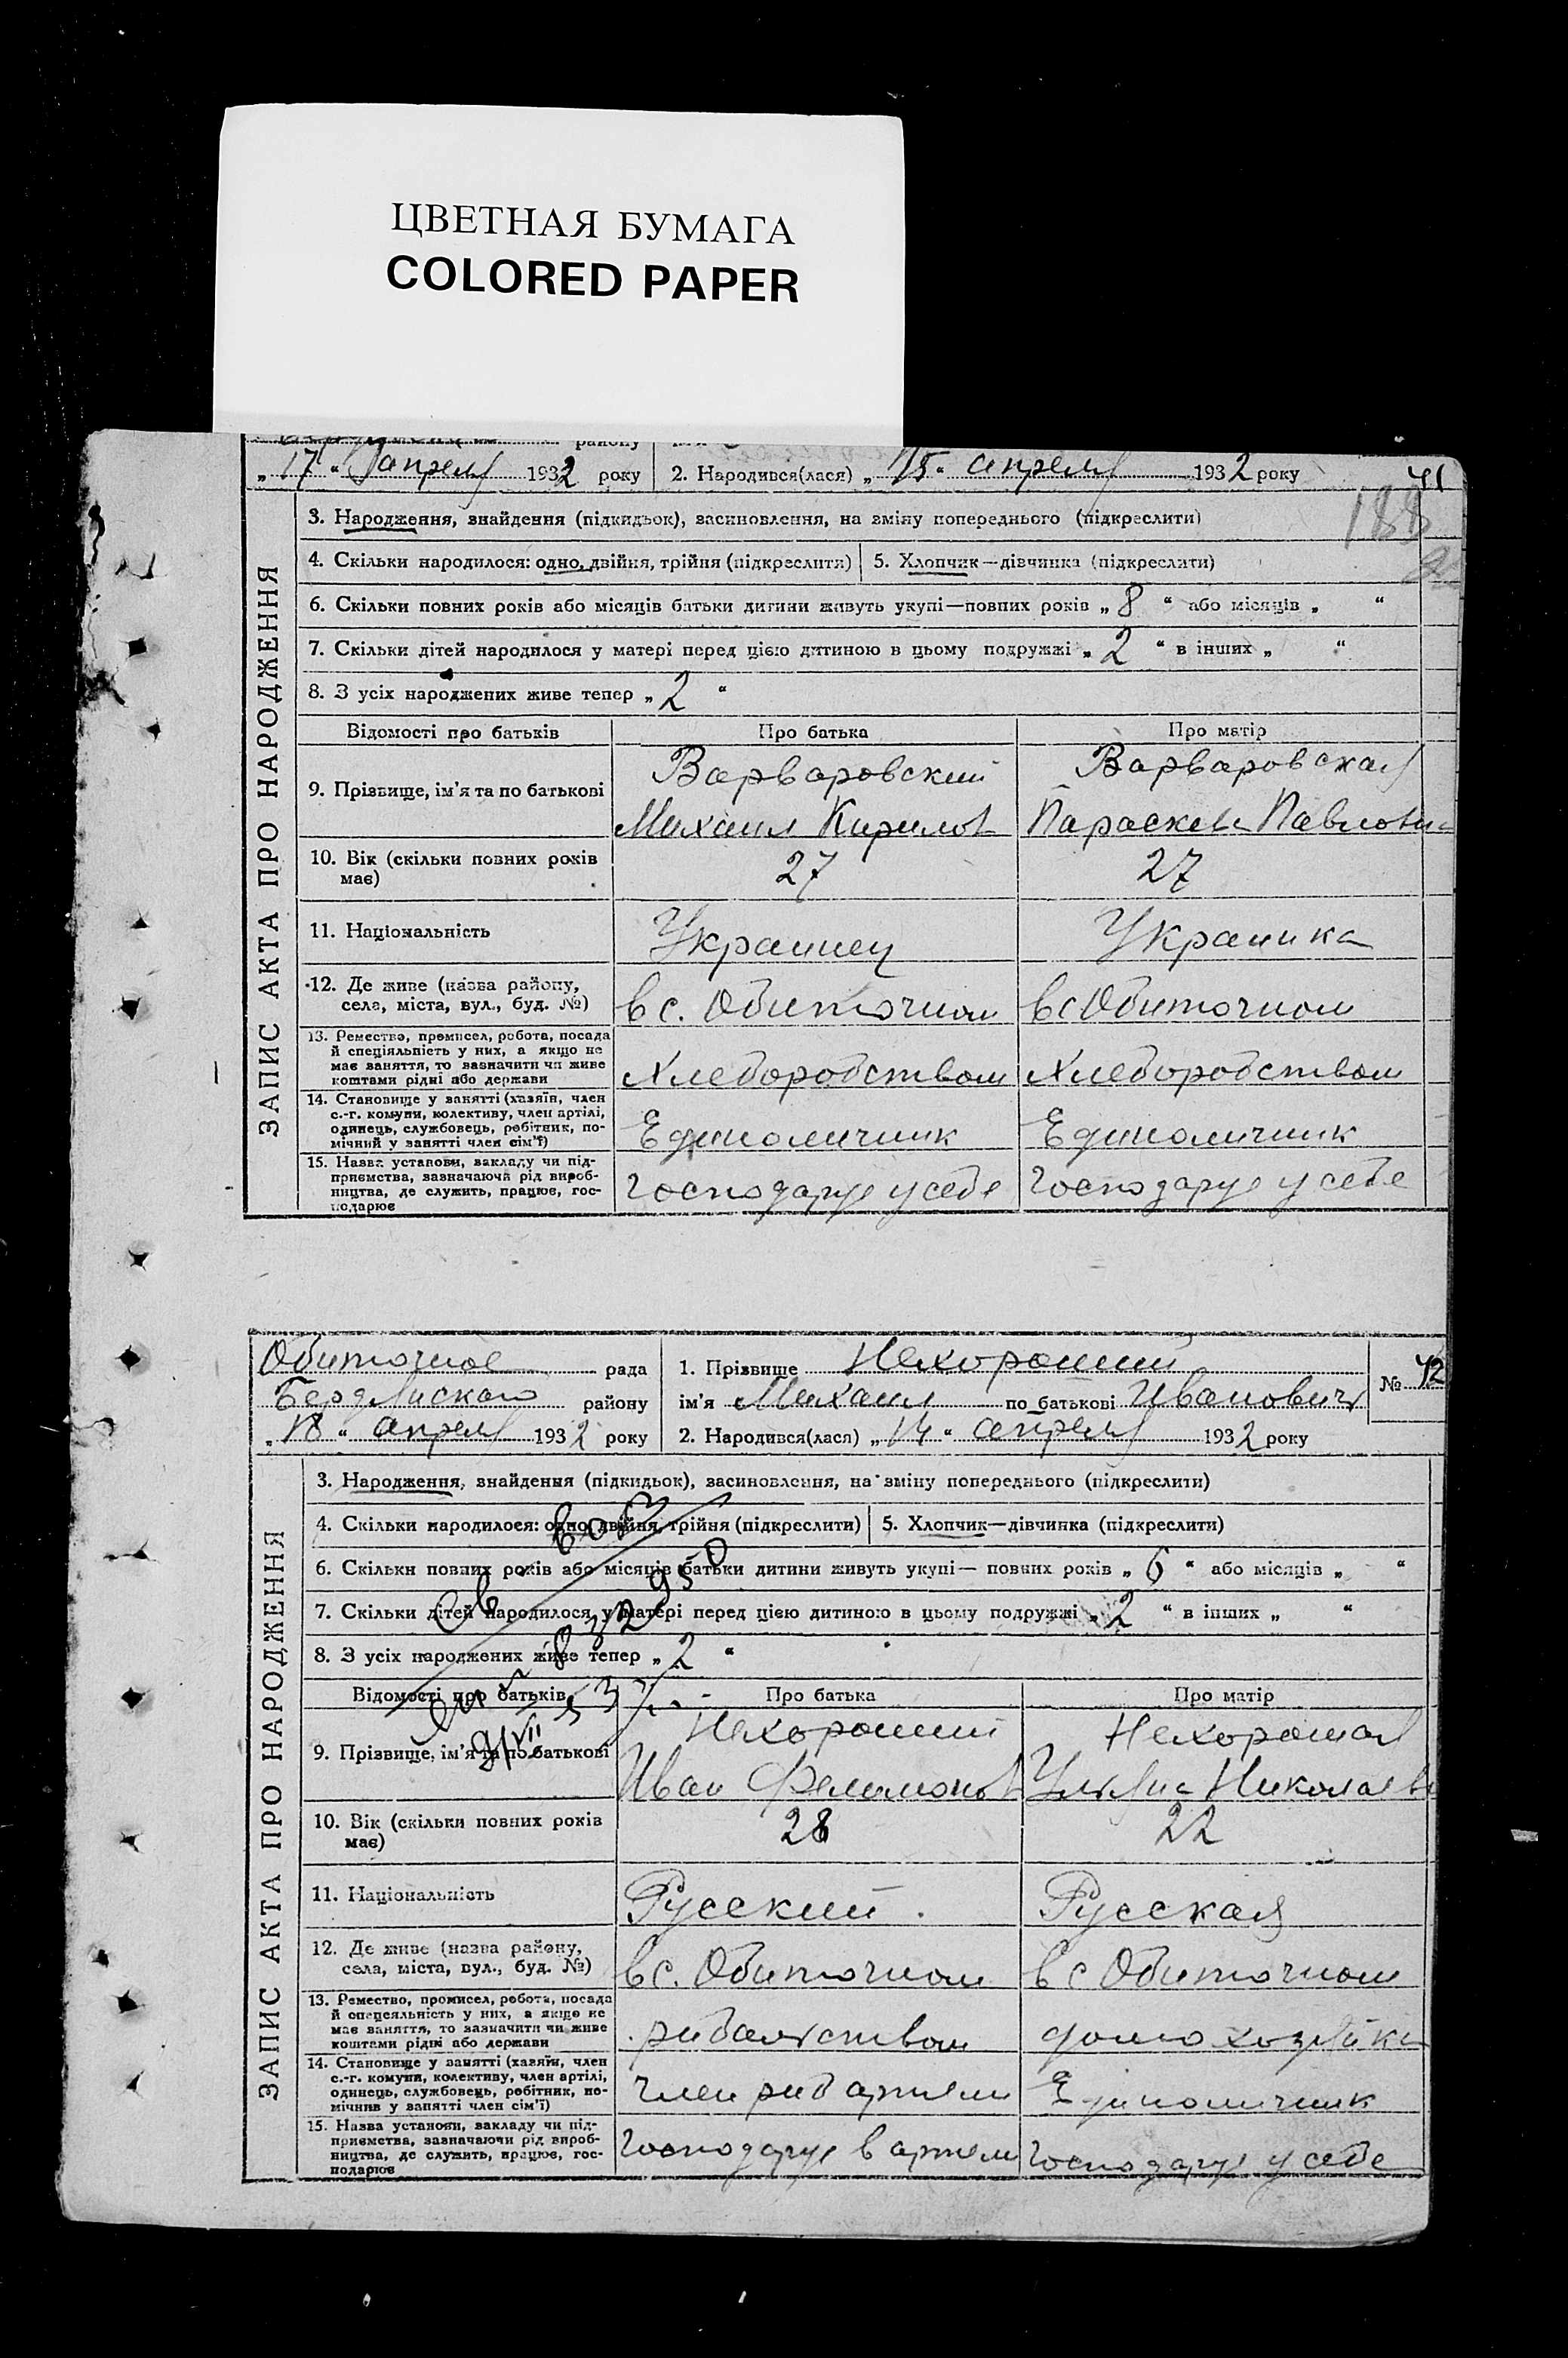 ЦВЕТНАЯ БУМАГА
COLORED PAPER
„ 17 “ апреля 1932 року
2. Народився(лася) „ 15 “ апреля 1932 року
41
188
ЗАПИС АКТА ПРО НАРОДЖЕННЯ
3. Народження, знайдення (підкидьок), засиновлення, на зміну попереднього (підкреслити)
4. Скільки народилося: одно, двійня, трійня (підкреслити)
5. Хлопчик—дівчинка (підкреслити)
6. Скільки повних років або місяців батьки дитини живуть укупі—повних років „ 8 “ або місяців „ “
7. Скільки дітей народилося у матері перед цією дитиною в цьому подружжі „ 2 “ в інших „ “
8. З усіх народжених живе тепер „ 2 “
Відомості про батьків
Про батька
Про матір
9. Прізвище, ім’я та по батькові
Варваровский
Михаил Кирилов
Варваровская
Параскева Павловна
10. Вік (скільки повних років
має)
27
27
11. Національність
Украинец
Украинка
12. Де живе (назва району,
села, міста, вул., буд. №)
в с. Обиточном
в с Обиточном
13. Ремество, промисел, робота, посада
й спеціяльність у них, а якщо не
має заняття, то зазначити чи живе
коштами рідні або держави
Хлеборобством
Хлеборобством
14. Становище у занятті (хазяїн, член
с.-г. комуни, колективу, член артілі,
одинець, службовець, робітник, по-
мічний у занятті член сім’ї)
Единоличник
Единоличник
15. Назва установи, закладу чи під-
приємства, зазначаючи рід вироб-
ництва, де служить, працює, гос-
подарює
Господарує у себе
Господарує у себе
Обиточное рада
Бердянского району
„ 18 “ апреля 1932 року
1. Прізвище Нехороший
ім’я Михаил по батькові Иванович
2. Народився(лася) „ 14 “ апреля 1932 року
№ 42
ЗАПИС АКТА ПРО НАРОДЖЕННЯ
3. Народження, знайдення (підкидьок), засиновлення, на зміну попереднього (підкреслити)
4. Скільки народилося: одно, двійня, трійня (підкреслити)
5. Хлопчик—дівчинка (підкреслити)
6. Скільки повних років або місяців батьки дитини живуть укупі— повних років „ 6 “ або місяців „ “
7. Скільки дітей народилося у матері перед цією дитиною в цьому подружжі „ 2 “ в інших „ “
8. З усіх народжених живе тепер „ 2 “
Відомості про батьків
Про батька
Про матір
9. Прізвище, ім’я та по батькові
Нехороший
Иван Фелимонов
Нехорошая
Ульяна Николаевн
10. Вік (скільки повних років
має)
28
22
11. Національність
Русский.
Русская
12. Де живе (назва району,
села, міста, вул., буд. №)
в с. Обиточном
в с Обиточном
13. Ремество, промисел, робота, посада
й спецсяльність у них, а якщо не
має заняття, то зазначити чи живе
коштами рідні або держави
рибальством
домохозяйка
14. Становище у занятті (хазяїн, член
с.-г. комуни, колективу, член артілі,
одинець, службовець, робітник, по-
мічник у занятті член сім’ї)
член риб артели
Единоличник
15. Назва установи, закладу чи під-
приємства, зазначаючи рід вироб-
ництва, де служить, працює, гос-
подарює
Господарує в артели
Господарує у себе